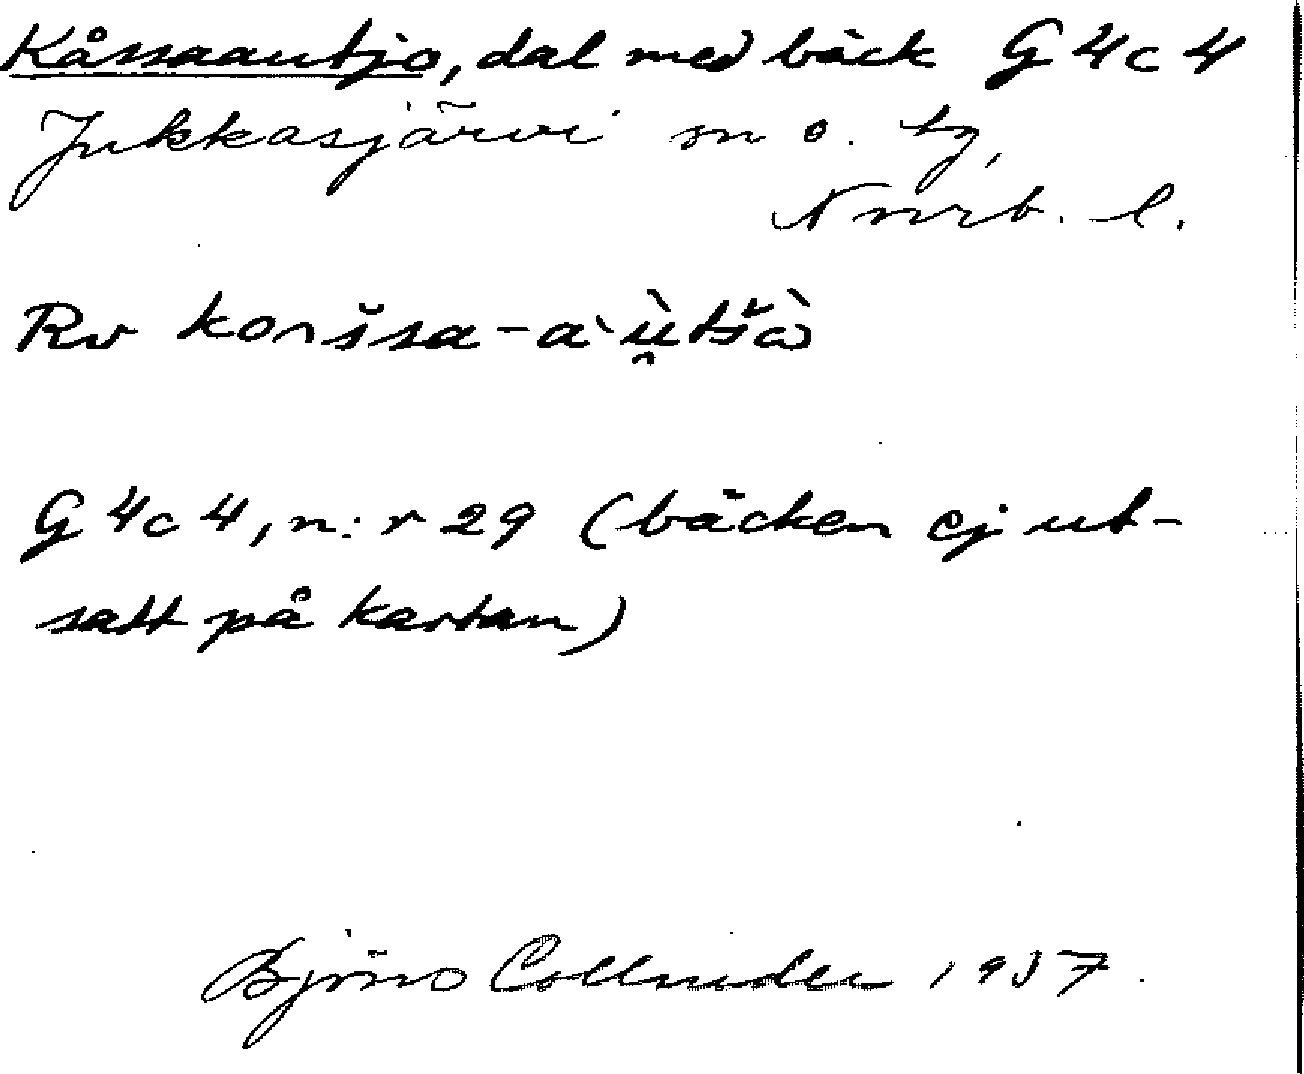 Kåssaautjo, dal med bäck G4c4
Jukkasjärvi sn o. tg,
Nnrb. l.
Rv
G4c4, n:r 29 (bäcken ej ut-
satt på kartan)
Björn Collinder 1937.